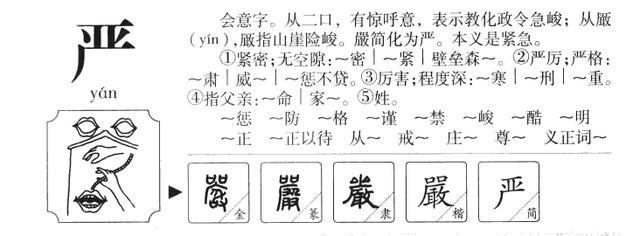 严
yán
会意字。从二口，有惊呼意，表示教化政令急峻；从厰
(yín)，厰指山崖险峻。嚴简化为严。本义是紧急。
①紧密;无空隙:～密｜～紧｜壁垒森～。②严厉;严格:
～肃｜威～｜～惩不贷。③厉害;程度深:～寒｜～刑｜～重。
④指父亲:～命｜家～。⑤姓。
～惩 ～防 ～格 ～谨 ～禁 ～峻 ～酷 ～明
～正 ～正以待 从～ 戒～ 庄～ 尊～ 义正词～
嚴 金 嚴 篆 嚴 隶 嚴 楷 严 简